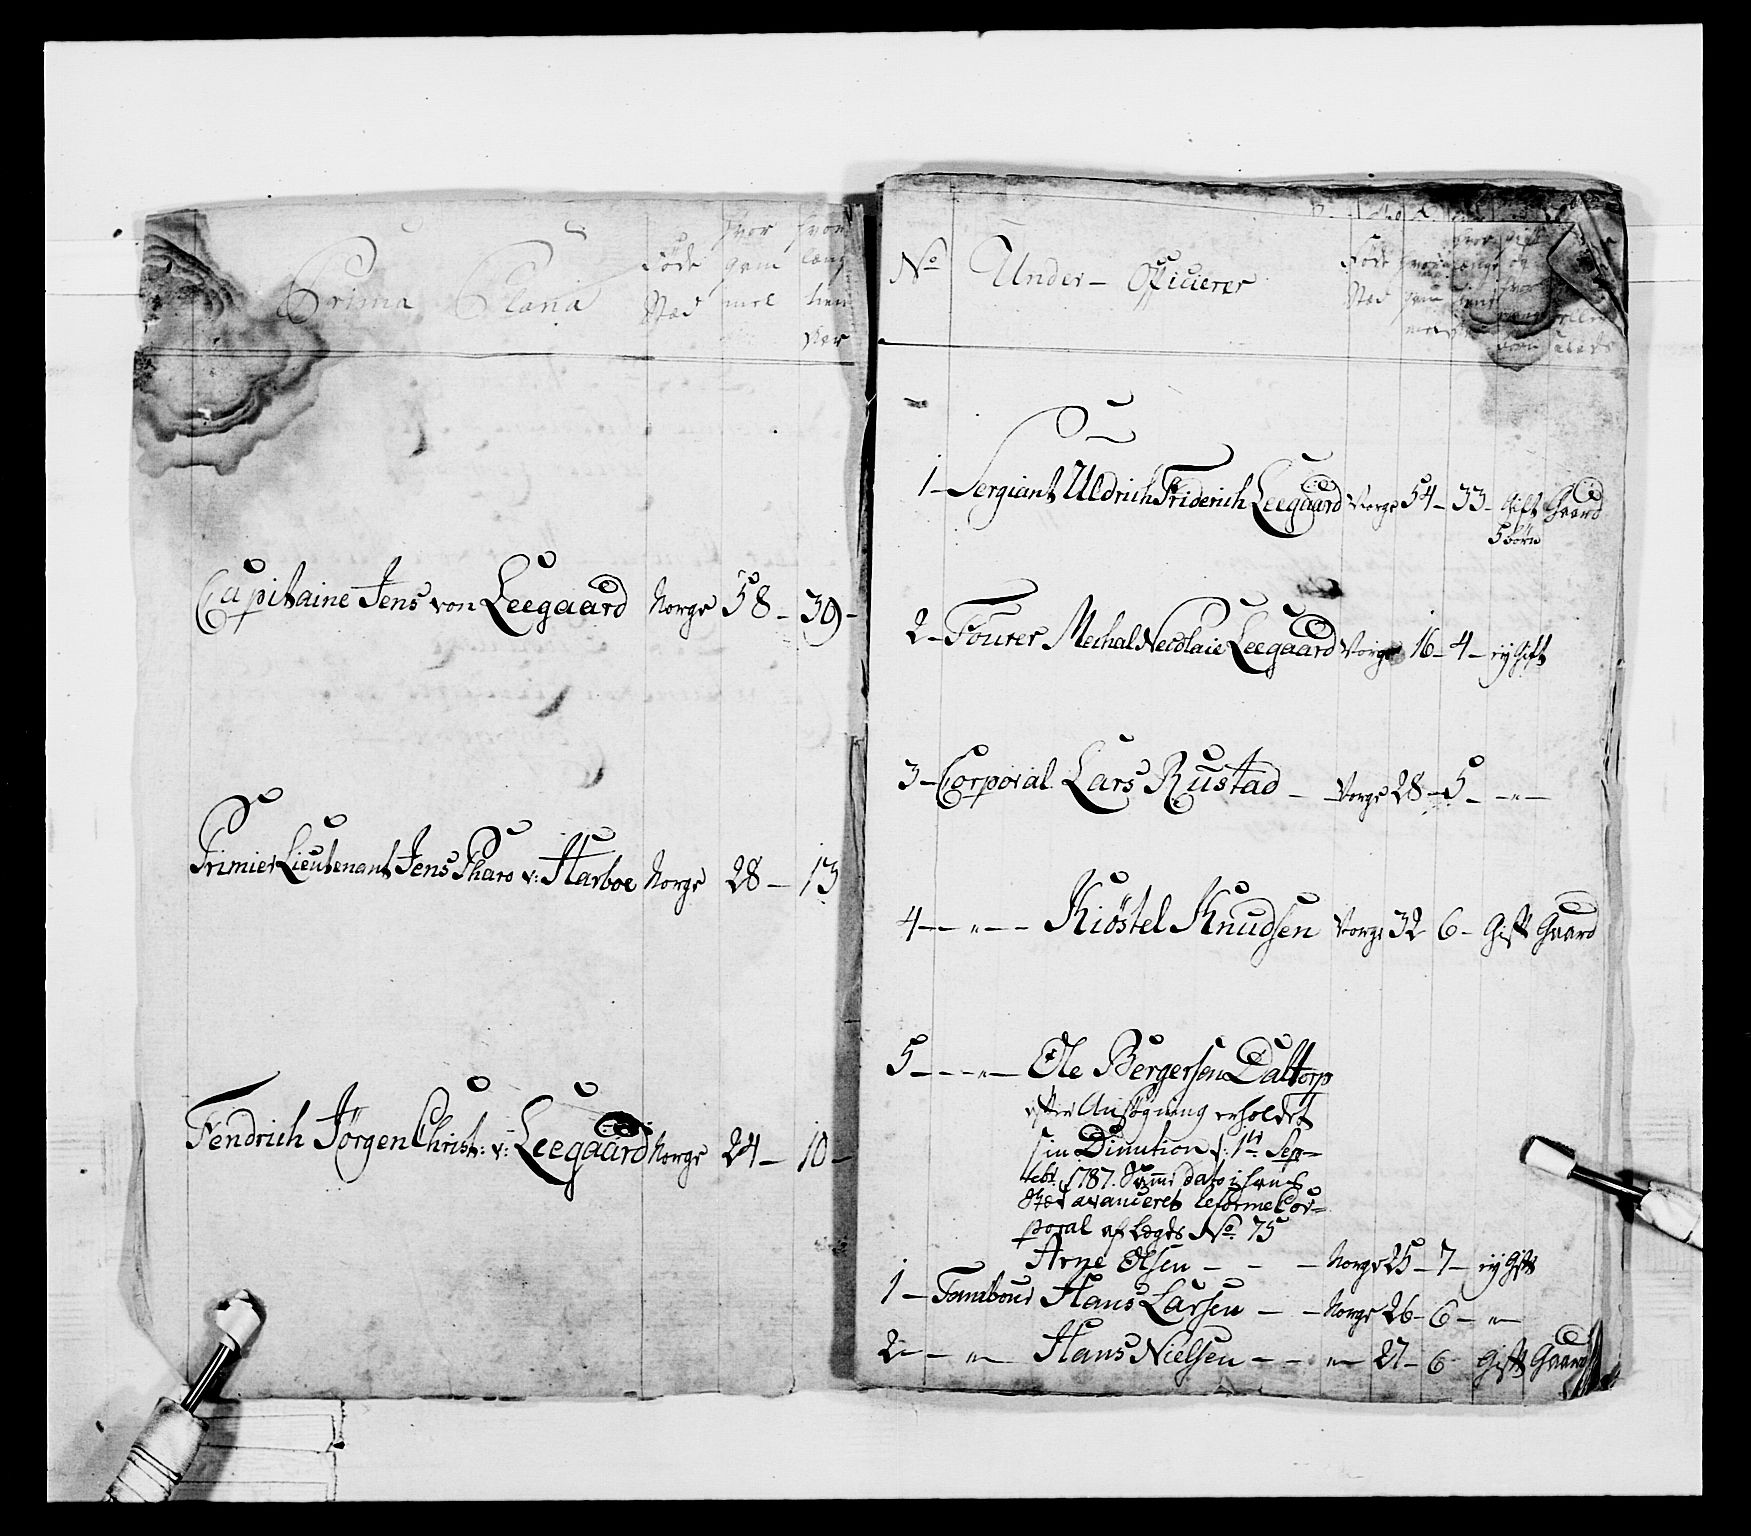 Prima Plana
Føde Stæd
hvor gam mel
hvor læng tien
Capitaine Jens von Leegaard Norge 58 - 39 -
Primier Lieutenant Jens Pharo v: Harboe Norge 28 - 13
Fendrich Jørgen Christ: v: Leegaard Norge 24 - 10 -
No Under - Officierer
Føde Stæd
1 - Sergiant Uldrich Friderich Leegaard Norge 54 - 33 - Gift Gaard
5 børn
2 - Fourer Mechal Necolaie Leegaard Norge 16 - 4 - ej Gift
3 - Corporal Lars Rustad - Norge 28 - 5 - - " -
4 - - " - - Kiøstel Knudsen Norge 32 6 - Gift Gaard
5 - - - " - Ole Bergersen Daltorp
efter Ansøgning erholdet
sin Dimition d: 1te Sep=
tebr. 1787. Samme dato i hans
Stæd avanceret Reforme Cor=
poral af Lægds No 75
Arne Olsen - - - Norge 25 - 7 - ej Gift
1 - Tambour Hans Larsen - - Norge 26 - 6 - " -
2 - - " - Hans Nielsen - - " - 27 - 6 Gift Gaard